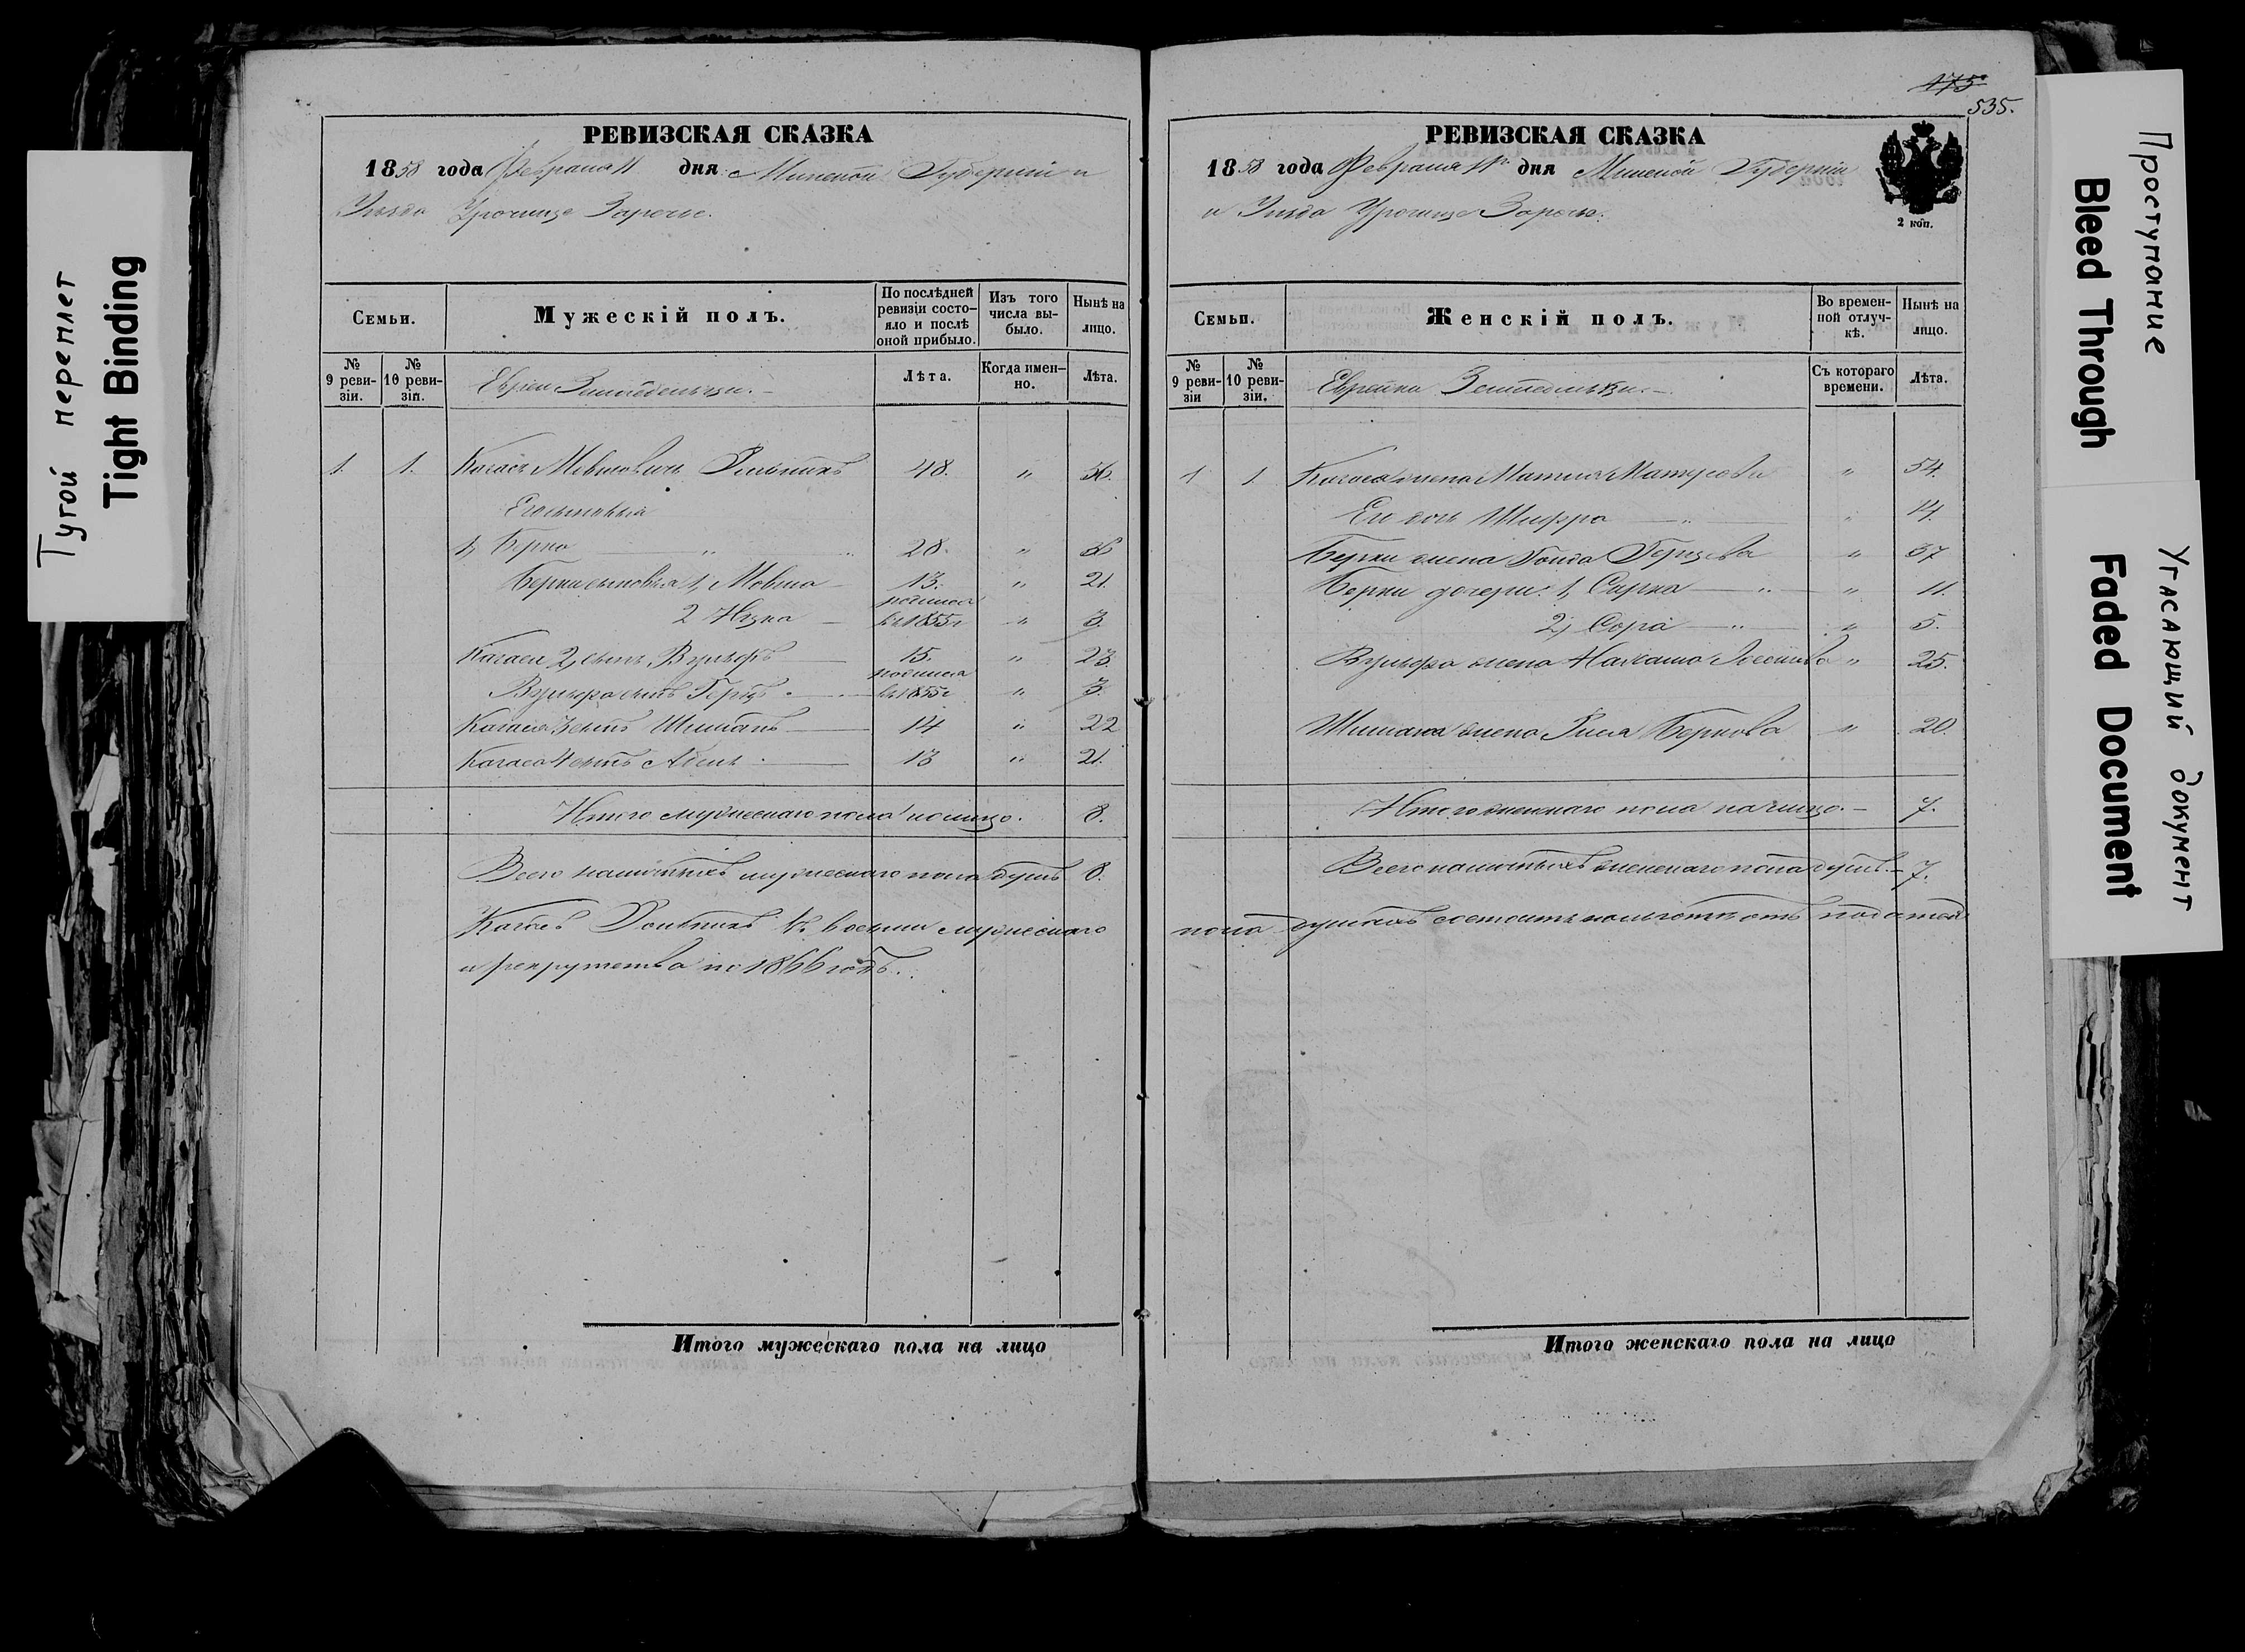 Тугой переплет
Tight Binding
РЕВИЗСКАЯ СКАЗКА
1858 года Февраля 11 дня Минской Губерніи и
Уѣзда Урочище Зарѣчье.
Семьи.
Мужескій полъ.
По послѣдней ревизіи состояло и послѣ оной прибыло.
Изъ того числа выбыло.
Нынѣ на лицо.
№ 9 ревизіи.
№ 10 ревизіи.
Евреи Земледельцы.
Лѣта.
Когда именно.
Лѣта.
1. 1. Мовшовичъ 48. " 56.
Его сыновья
1, Берко " 28. " 36
Берки сыновья 1, Мовша 13. " 21.
2 Ицка родился въ 1855 г " 3.
2, сынъ Вульфъ 15. " 23.
Вульфа сынъ Герцъ родился въ 1855 г " 3.
3 сынъ Шиманъ 14 " 22
4 сынъ 13 " 21.
Итого мужескаго пола на лицо. 8.
Всего наличныхъ мужескаго пола душъ 8.
въ восьми мужескаго
и рекрутства по 1866 годъ.
Итого мужескаго пола на лицо
475
535.
РЕВИЗСКАЯ СКАЗКА
1858 года Февраля 11 дня Минской Губерніи
и Уѣзда Урочище Зарѣчье.
2 коп.
Семьи.
Женскій полъ.
Во временной отлучкѣ.
Нынѣ на лицо.
№ 9 ревизіи
№ 10 ревизіи.
Еврейки Земледельцы.
Съ котораго времени.
Лѣта.
1 1. жена Матля Матусова " 54.
Его дочь Шифра " " 14.
Берки жена Герцова " 37
Берки дочери: 1, Сырка " " 11.
2, Сора " " 5.
Вульфа жена " 25.
Шимана жена Беркова " 20.
Итого женскаго пола на лицо. 7.
Всего наличныхъ женскаго пола душъ. 7.
пола душахъ состоитъ на льготѣ отъ податей
Итого женскаго пола на лицо
Проступание
Bleed Through
Угасающий документ
Faded Document